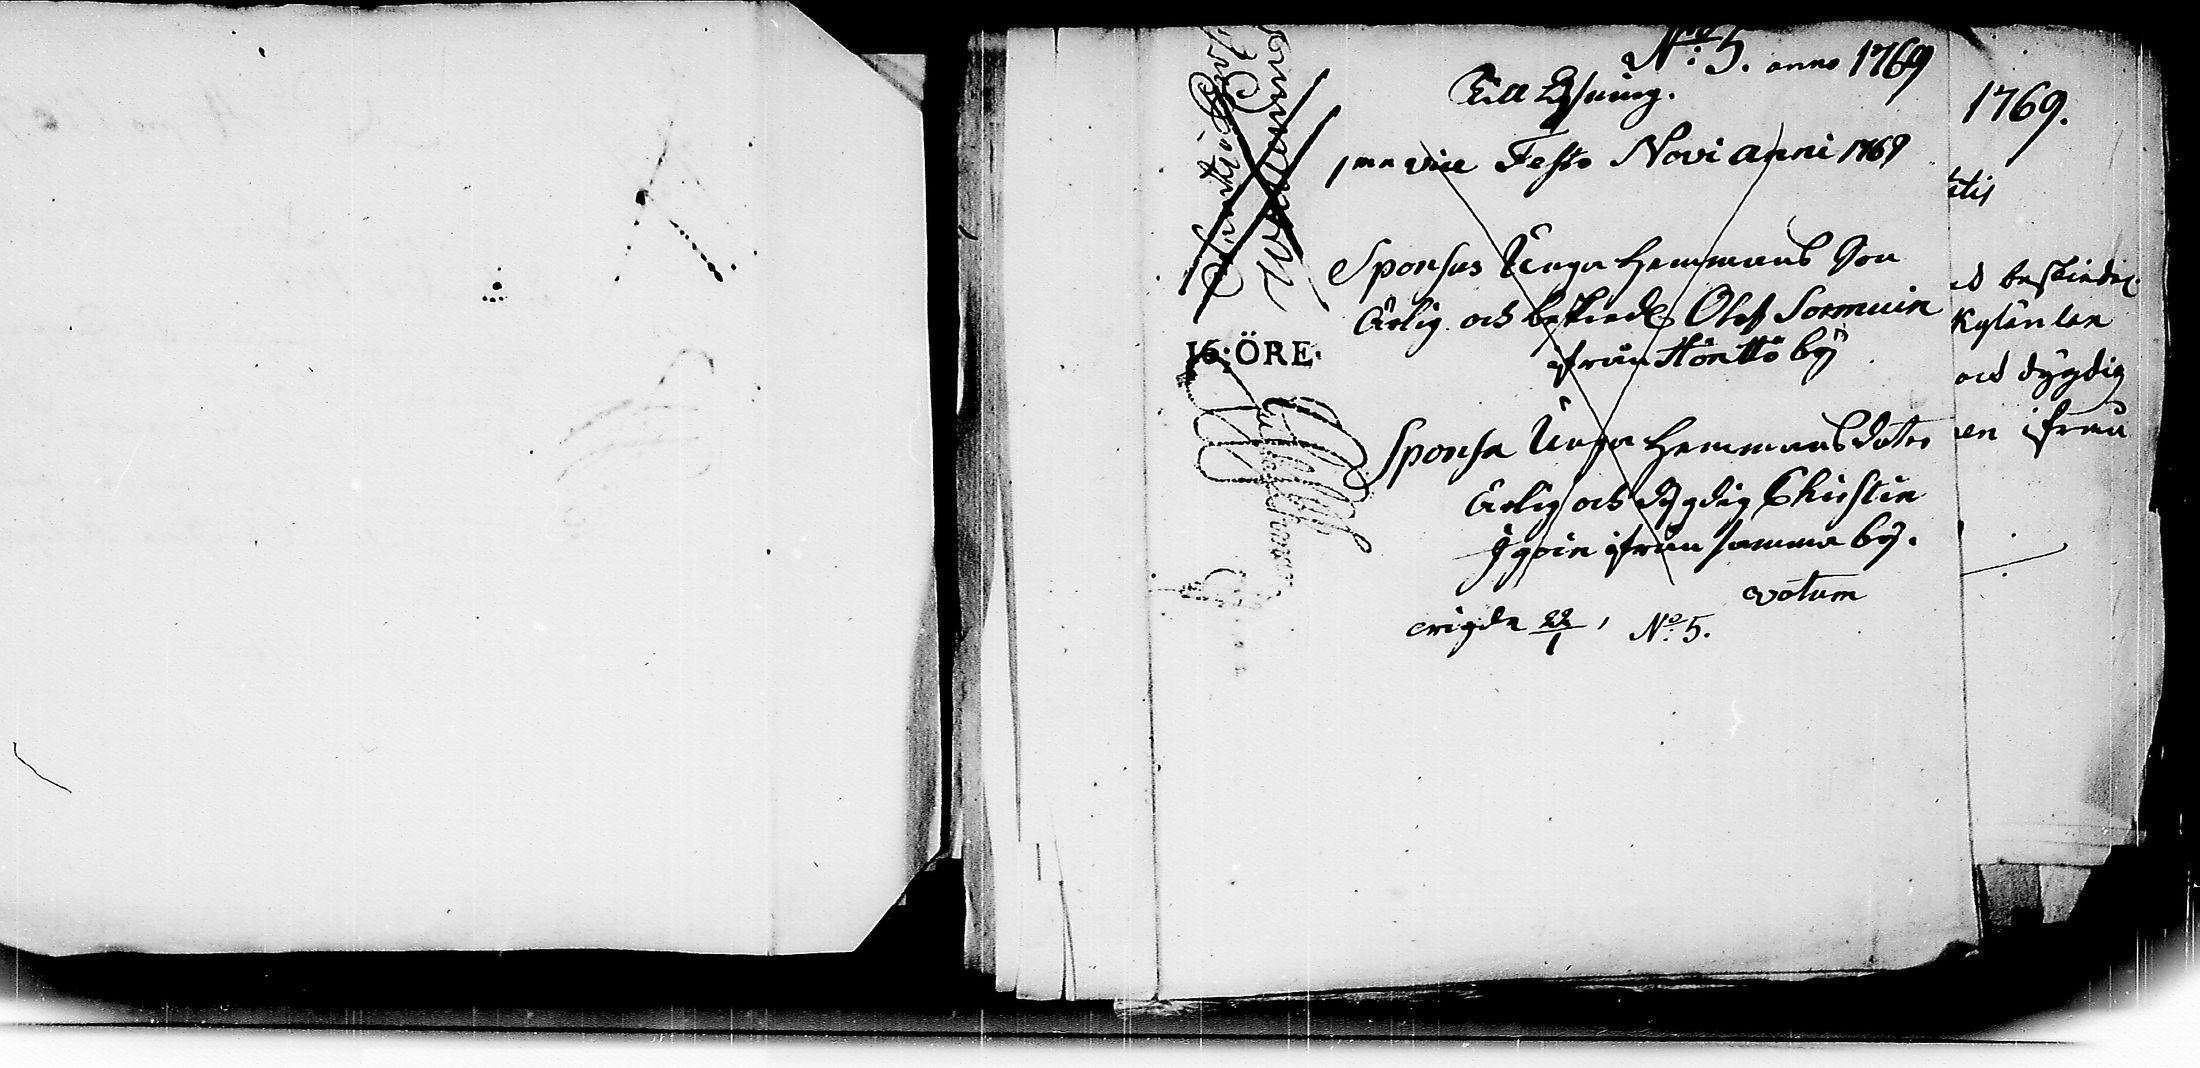 No: 5. anno 1769
Till Lysning.
1ma vice Festo Novi anni 1769
Sponsus Unga hemmans Son
Ärlig och beskiedl Olof Sormuin
ifrån Hönttö by
16. ÖRE.
Sponsa Unga hemmansdoter
Ärlig och dygdig Christin
Igoin ifrån samma by.
votum
wigda 22/1, No: 5.
1769.
beskiedel.
Kylänlan
och dygdig
en ifrån